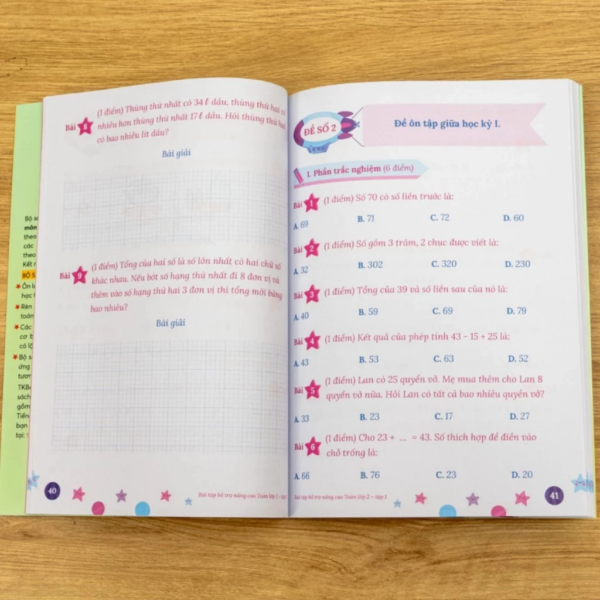 Bộ s
môn
theo
các
theo
Kết n
BỘ S
Ôn lu
học t
Rèn
toán
Các
cơ b
có lộ
Bộ s
ứng
tươn
TKBo
sách
gồm
Tiến
bạn
tại:
Bài 8 (1 điểm) Thùng thứ nhất có 34 ℓ dầu, thùng thứ hai có
nhiều hơn thùng thứ nhất 17 ℓ dầu. Hỏi thùng thứ hai
có bao nhiêu lít dầu?
Bài giải
Bài 9 (1 điểm) Tổng của hai số là số lớn nhất có hai chữ số
khác nhau. Nếu bớt số hạng thứ nhất đi 8 đơn vị và
thêm vào số hạng thứ hai 3 đơn vị thì tổng mới bằng
bao nhiêu?
Bài giải
40
Bài tập bổ trợ nâng cao Toán lớp 2 - tập 1
ĐỀ SỐ 2
Đề ôn tập giữa học kỳ I.
I. Phần trắc nghiệm (6 điểm)
Bài 1 (1 điểm) Số 70 có số liền trước là:
A. 69 B. 71 C. 72 D. 60
Bài 2 (1 điểm) Số gồm 3 trăm, 2 chục được viết là:
A. 32 B. 302 C. 320 D. 230
Bài 3 (1 điểm) Tổng của 39 và số liền sau của nó là:
A. 40 B. 59 C. 69 D. 79
Bài 4 (1 điểm) Kết quả của phép tính 43 - 15 + 25 là:
A. 43 B. 53 C. 63 D. 52
Bài 5 (1 điểm) Lan có 25 quyển vở. Mẹ mua thêm cho Lan 8
quyển vở nữa. Hỏi Lan có tất cả bao nhiêu quyển vở?
A. 33 B. 23 C. 17 D. 27
Bài 6 (1 điểm) Cho 23 + ... = 43. Số thích hợp để điền vào
chỗ trống là:
A. 66 B. 76 C. 23 D. 20
Bài tập bổ trợ nâng cao Toán lớp 2 - tập 1
41